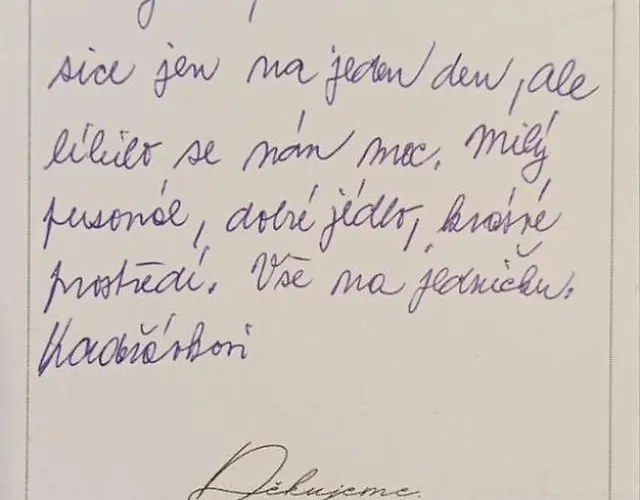 sice jen na jeden den, ale
líbilo se nám moc. Milý
personál, dobré jídlo, krásné
prostředí. Vše na jedničku.
Děkujeme.